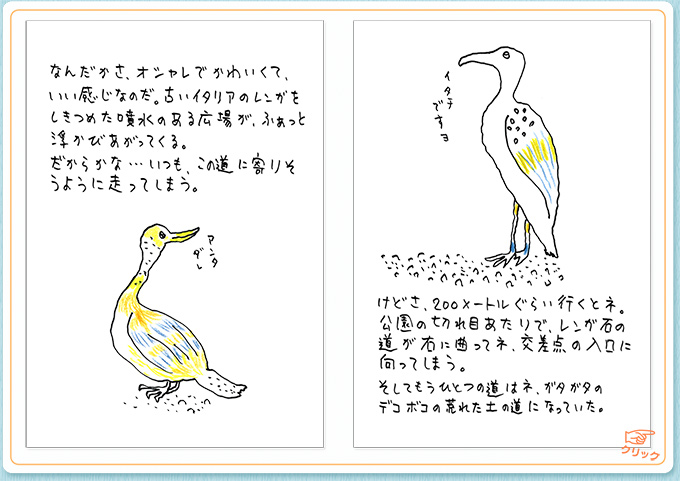 なんだかさ、オシャレでかわいくて、
いい感じなのだ。古いイタリアのレンガを
しきつめた噴水のある広場が、ふぁっと
浮かびあがってくる。
だからかな…いつも、この道に寄りそ
うように走ってしまう。
アンタ
ダレ
イタチ
ですヨ
けどさ、200メートルぐらい行くとネ。
公園の切れ目あたりで、レンガ石の
道が右に曲ってネ、交差点の入口に
向ってしまう。
そしてもうひとつの道はネ、ガタガタの
デコボコの荒れた土の道になっていた。
クリック